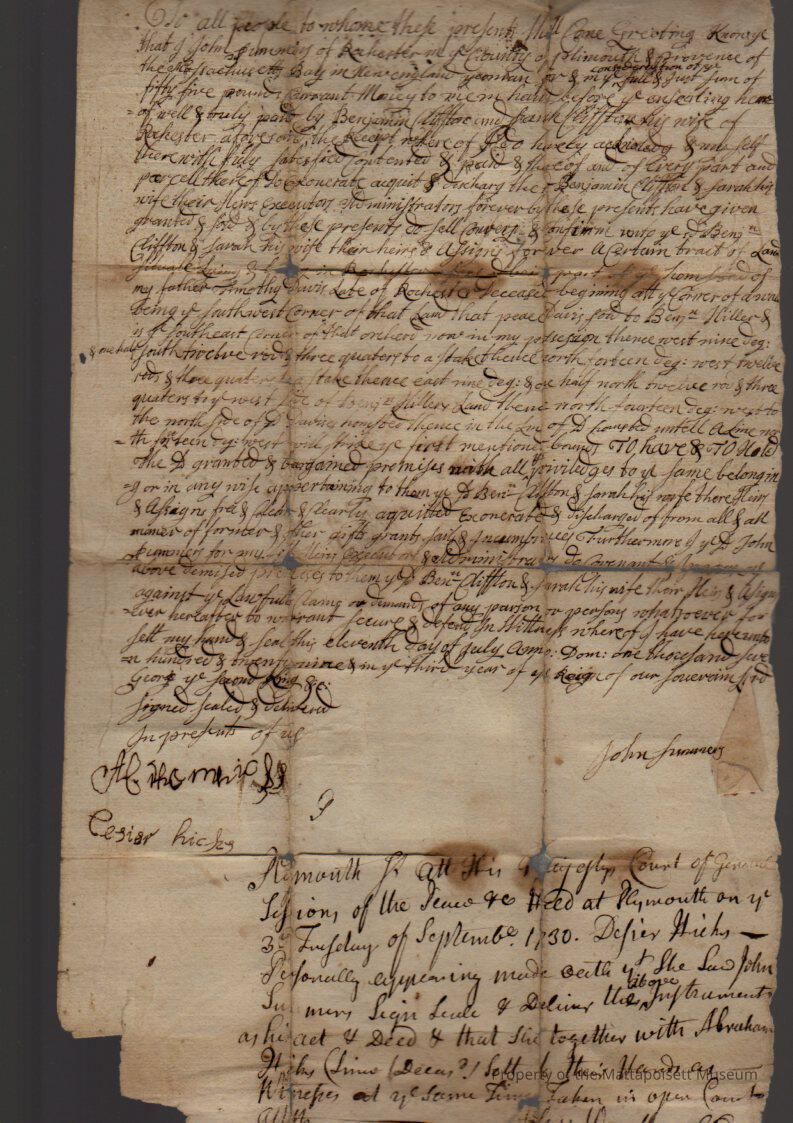 To all people to whome these presents shall Come Greeting Know ye
that I John Summers of Rochester in ye County of Plimouth & Provence of
the Massachusetts Bay in Newengland yeoman for & in Consideration of ye full & Just sum of
fifty five pounds Currant Money to me in hand before ye ensealing here
=of well & truly paid by Benjamin Cliffton and Sarah Cliffton his wife of
Rochester aforesaid the Receipt where of I do hereby acknoledg & my self
therewith fully sattisfied contented & paid & thereof and of Every part and
parcell thereof do Exonerate acquit & discharg the sd Benjamin Cliffton & Sarah his
wife their Heirs Executors Administrators forever by these presents have given
granted & sold & by these presents do sell & Confirm unto ye sd Benjn
Cliffton & Sarah his wife their heirs & Assigns forever A Certain tract of Land
Lying & in Rochester being part of ye homsted of
my father Timothy Davis Late of Rochester deceased begining att ye Corner of a
being ye southwest Corner of that Land that Davis sold to Benjn Hiller &
is ye southeast Corner of that orcherd now in my possesion thence west nine deg:
& one half south twelve rods & three quaters to a stake thence north forteen deg: west twelve
rods & three quaters to a stake thence east nine deg: & one half north twelve rod & three
quaters to ye west side of Benjn Hillers Land thence north fourteen deg: west to
the north side of sd Davises homsted thence in the Line of sd homsted untill A Line nor
=th forteen deg: west will strike ye first mentioned bounds TO have & TO Hold
The sd granted & bargained premises with all ye priviledges to ye same belongin
=g or in any wise appertaining to them ye sd Benjn Cliffton & Sarah his wife there Heirs
& Assigns free & Clear & Clearly acquitted Exonerated & discharged of from all & all
maner of former & other gifts grants sails & Incumbrances Furthermore I ye sd John
Summers for my self Heirs Executors & Administrators do Covenant & Ingage ye
above demised premises to them ye sd Benjn Cliffton & Sarah his wife their Heirs & Assigns
against ye Lawfull Claims or demands of any parson or persons whatsoever for
=ever hereafter to warrant secure & defend In Wittness where of I have hereunto
sett my hand & seal this eleventh day of July Anno: Dom: one thousand seve
=n hundred & twenty nine & in ye third year of ye Reign of our souverain Lord
Georg ye second King &c:
Signed sealed & delivered
In presents of us
John Summers
Desier hicks
Plymouth Ss Att His Majestys Court of General
Sessions of the Peace &c Held at Plymouth on ye
3d Tuesday of Septembr. 1730. Desier Hicks —
Personally appearing made oath yt She Saw John
Summers Sign Seale & Deliver the above Instrument
as his act & Deed & that She together with Abraham
Hicks (Since Decead) Sett to their Hands as —
Witneses at ye Same Time Taken in open Court
Property of the Mattapoisett Museum